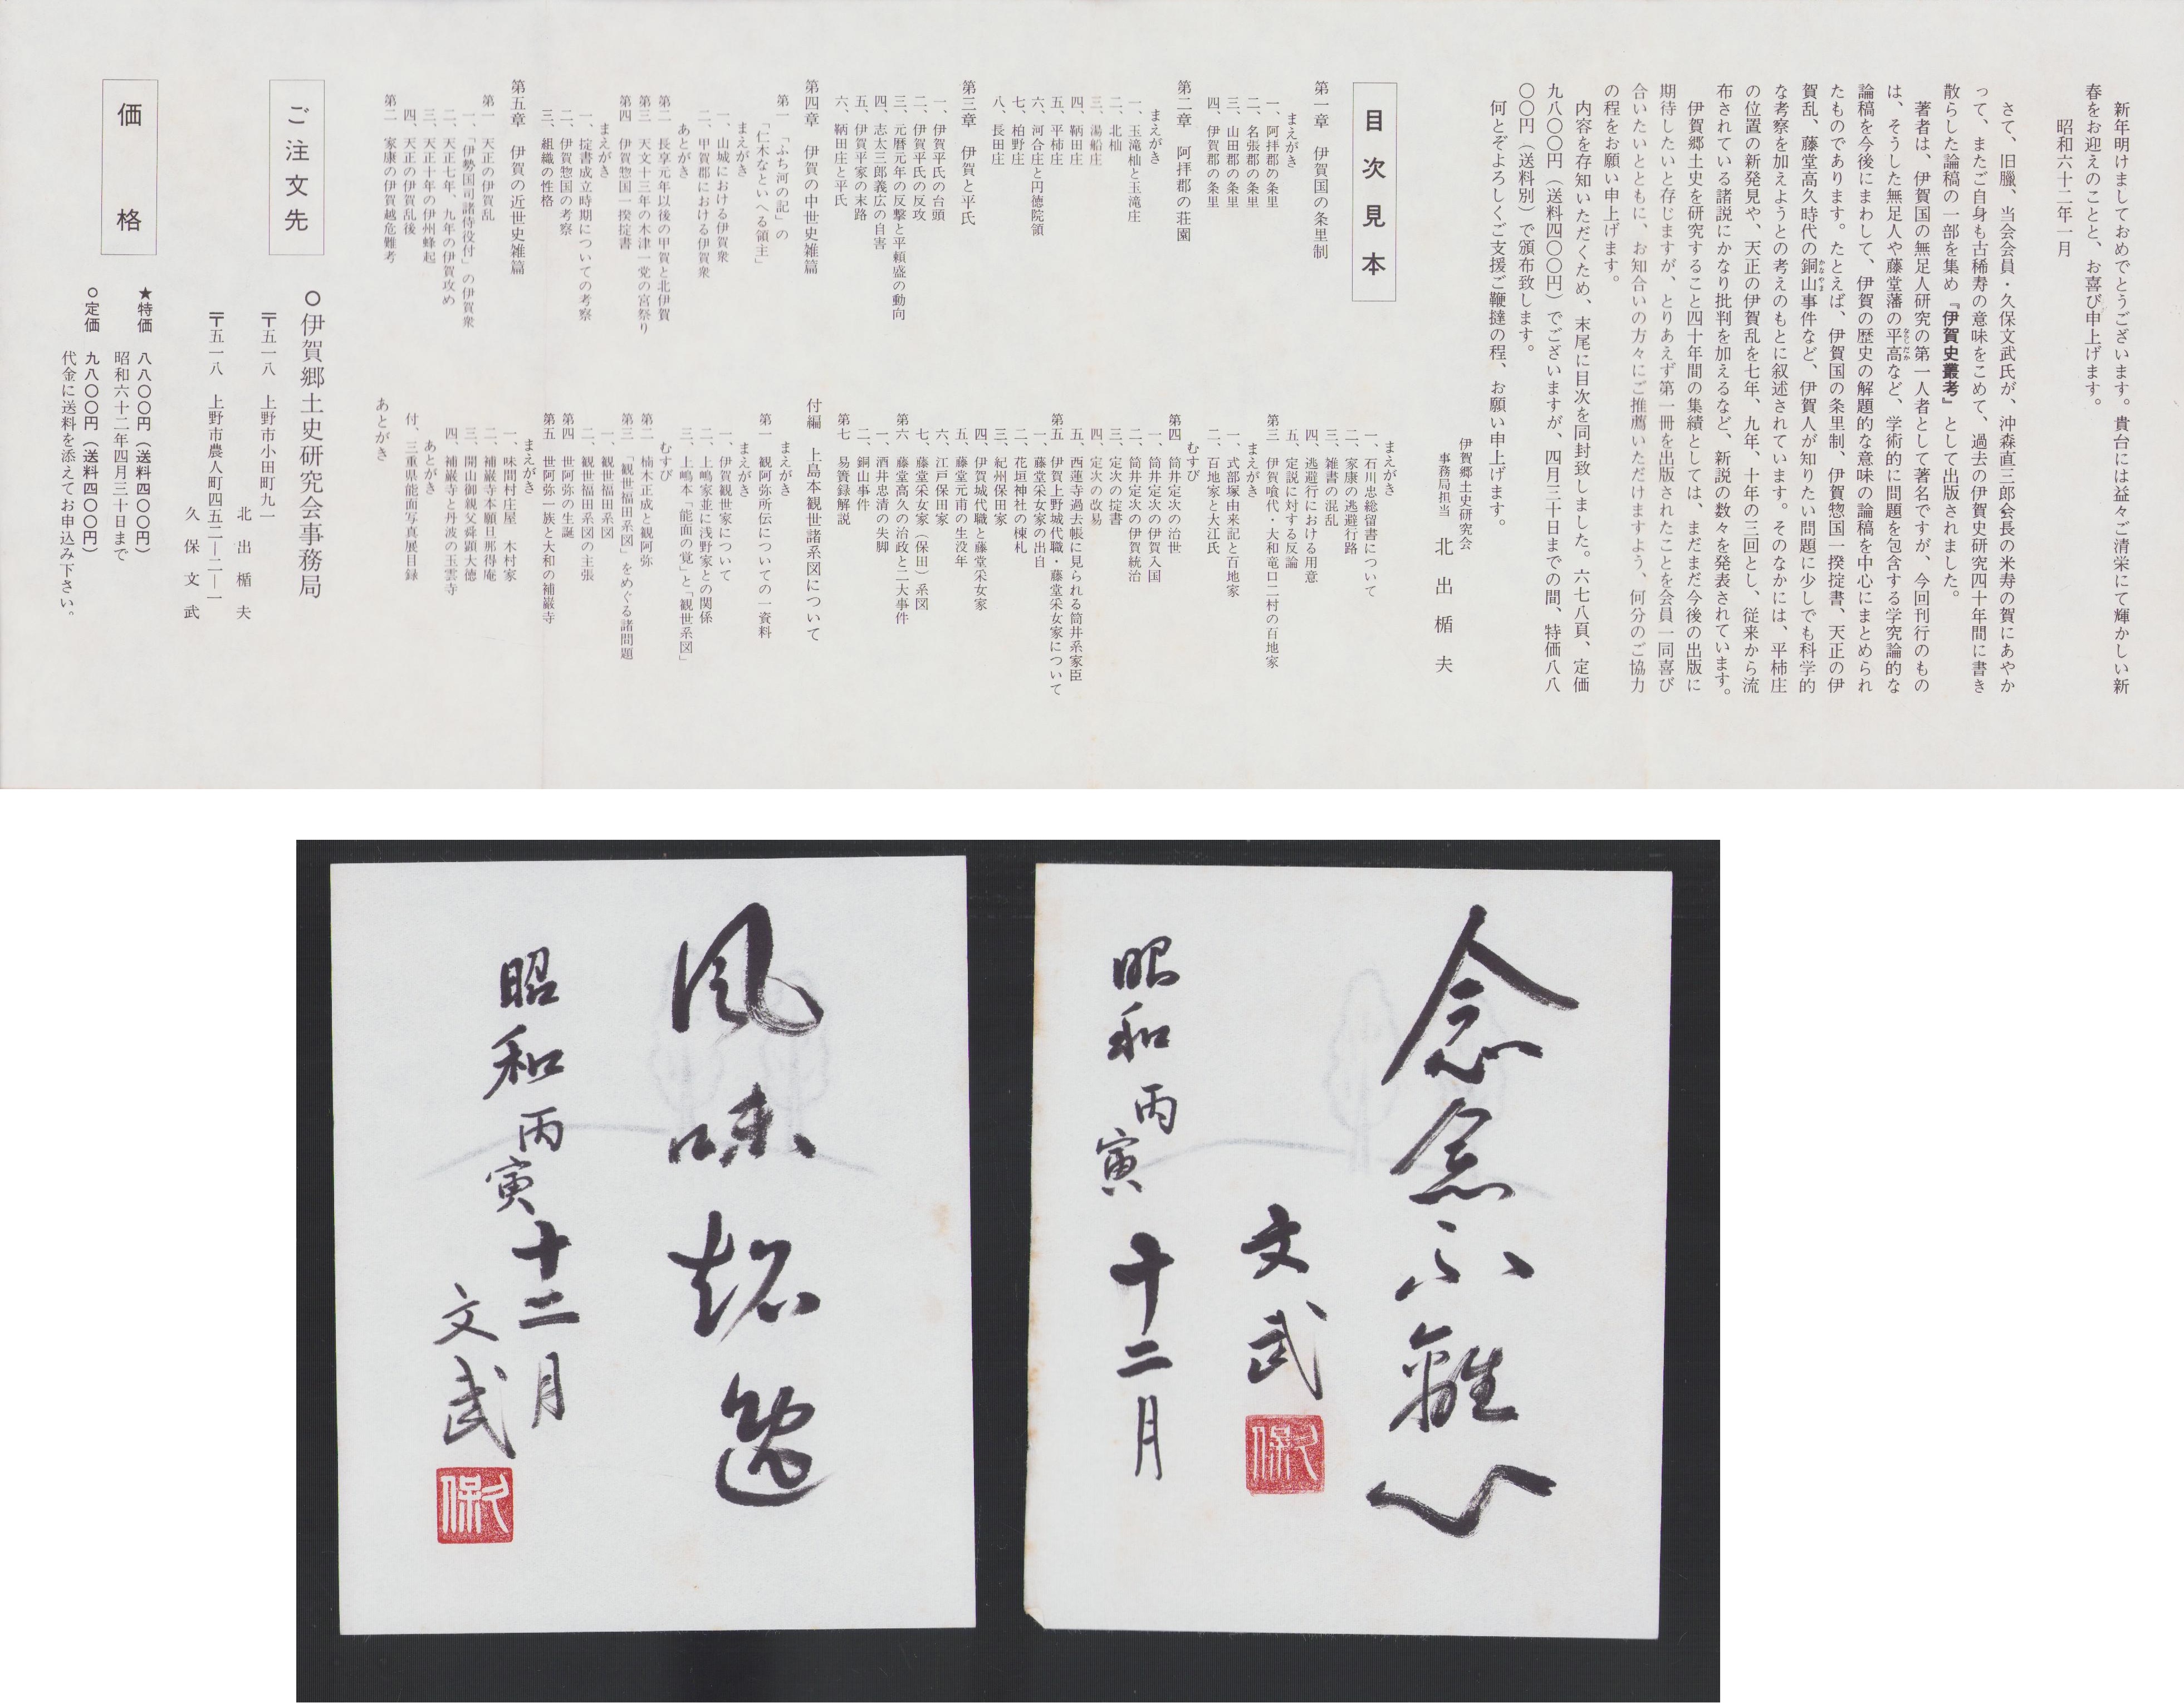 新年明けましておめでとうございます。貴台には益々ご清栄にて輝かしい新
春をお迎えのことと、お喜び申上げます。
昭和六十二年一月
さて、旧臘、当会会員・久保文武氏が、沖森直三郎会長の米寿の賀にあやか
って、またご自身も古稀寿の意味をこめて、過去の伊賀史研究四十年間に書き
散らした論稿の一部を集め『伊賀史叢考』として出版されました。
著者は、伊賀国の無足人研究の第一人者として著名ですが、今回刊行のもの
は、そうした無足人や藤堂藩の平高など、学術的に問題を包含する学究論的な
論稿を今後にまわして、伊賀の歴史の解題的な意味の論稿を中心にまとめられ
たものであります。たとえば、伊賀国の条里制、伊賀惣国一揆掟書、天正の伊
賀乱、藤堂高久時代の銅山事件など、伊賀人が知りたい問題に少しでも科学的
な考察を加えようとの考えのもとに叙述されています。そのなかには、平柿庄
の位置の新発見や、天正の伊賀乱を七年、九年、十年の三回とし、従来から流
布されている諸説にかなり批判を加えるなど、新説の数々を発表されています。
伊賀郷土史を研究すること四十年間の集績としては、まだまだ今後の出版に
期待したいと存じますが、とりあえず第一冊を出版されたことを会員一同喜び
合いたいとともに、お知合いの方々にご推薦いただけますよう、何分のご協力
の程をお願い申上げます。
内容を存知いただくため、末尾に目次を同封致しました。六七八頁、定価
九八〇〇円（送料四〇〇円）でございますが、四月三十日までの間、特価八八
〇〇円（送料別）で頒布致します。
何とぞよろしくご支援ご鞭撻の程、お願い申上げます。
伊賀郷土史研究会
事務局担当　北出楯夫
目次見本
第一章　伊賀国の条里制
まえがき
一、阿拝郡の条里
二、名張郡の条里
三、山田郡の条里
四、伊賀郡の条里
第二章　阿拝郡の荘園
まえがき
一、玉滝杣と玉滝庄
二、北杣
三、湯船庄
四、鞆田庄
五、平柿庄
六、河合庄と円徳院領
七、柏野庄
八、長田庄
第三章　伊賀と平氏
一、伊賀平氏の台頭
二、伊賀平氏の反攻
三、元暦元年の反撃と平頼盛の動向
四、志太三郎義広の自害
五、伊賀平家の末路
六、鞆田庄と平氏
第四章　伊賀の中世史雑篇
第一　「ふち河の記」の
「仁木なといへる領主」
まえがき
一、山城における伊賀衆
二、甲賀郡における伊賀衆
あとがき
第二　長享元年以後の甲賀と北伊賀
第三　天文十三年の木津一党の宮祭り
第四　伊賀惣国一揆掟書
まえがき
一、掟書成立時期についての考察
二、伊賀惣国の考察
三、組織の性格
第五章　伊賀の近世史雑篇
第一　天正の伊賀乱
一、「伊勢国司諸侍役付」の伊賀衆
二、天正七年、九年の伊賀攻め
三、天正十年の伊州蜂起
四、天正の伊賀乱後
第二　家康の伊賀越危難考
まえがき
一、石川忠総留書について
二、家康の逃避行路
三、雑書の混乱
四、逃避行における用意
五、定説に対する反論
第三　伊賀喰代・大和竜口二村の百地家
まえがき
一、式部塚由来記と百地家
二、百地家と大江氏
むすび
第四　筒井定次の治世
一、筒井定次の伊賀入国
二、筒井定次の伊賀統治
三、定次の掟書
四、定次の改易
五、西蓮寺過去帳に見られる筒井系家臣
第五　伊賀上野城代職・藤堂采女家について
一、藤堂采女家の出自
二、花垣神社の棟札
三、紀州保田家
四、伊賀城代職と藤堂采女家
五、藤堂元甫の生没年
六、江戸保田家
七、藤堂采女家（保田）系図
第六　藤堂高久の治政と二大事件
一、酒井忠清の失脚
二、銅山事件
第七　易簀録解説
付編　上島本観世諸系図について
まえがき
第一　観阿弥所伝についての一資料
まえがき
一、伊賀観世家について
二、上嶋家並に浅野家との関係
三、上嶋本「能面の覚」と「観世系図」
むすび
第二　楠木正成と観阿弥
第三　「観世福田系図」をめぐる諸問題
一、観世福田系図
二、観世福田系図の主張
第四　世阿弥の生誕
第五　世阿弥一族と大和の補巌寺
まえがき
一、味間村庄屋　木村家
二、補巌寺本願旦那得庵
三、開山御親父舜顕大徳
四、補巌寺と丹波の玉雲寺
あとがき
付、三重県能面写真展目録
あとがき
ご注文先
○伊賀郷土史研究会事務局
〒五一八　上野市小田町九一
北出楯夫
〒五一八　上野市農人町四五二―二―一
久保文武
価格
★特価　八八〇〇円（送料四〇〇円）
昭和六十二年四月三十日まで
○定価　九八〇〇円（送料四〇〇円）
代金に送料を添えてお申込み下さい。
念念不離心
文武
昭和丙寅十二月
久保
風味超逸
昭和丙寅十二月
文武
久保